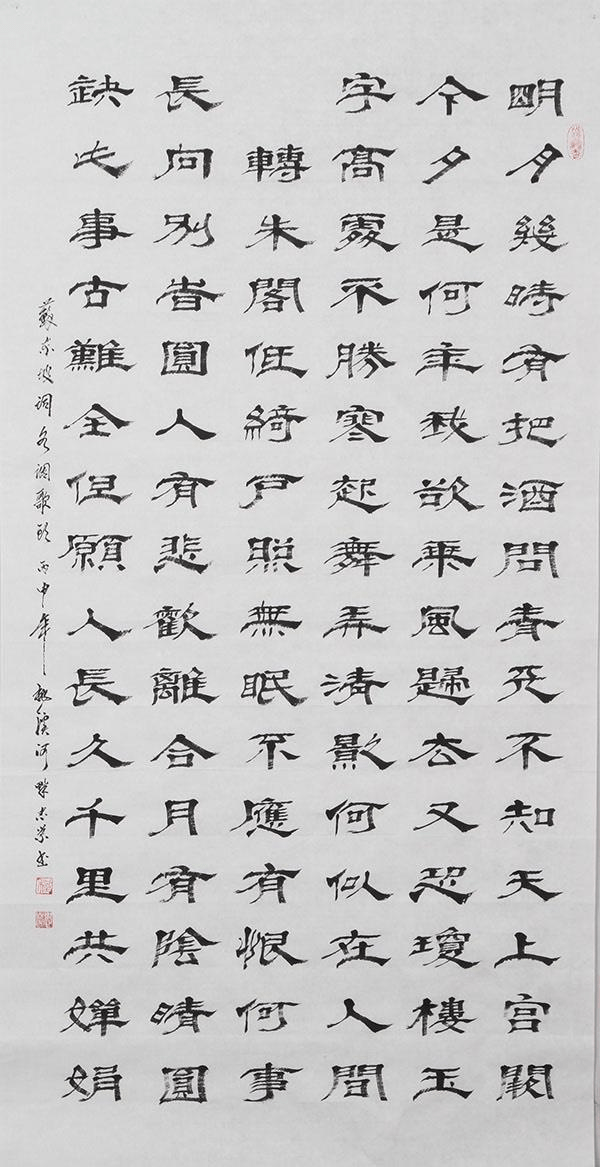 明月幾時有把酒問青天不知天上宮闕
今夕是何年我欲乘風歸去又恐瓊樓玉
宇高處不勝寒起舞弄清影何似在人間
轉朱閣低綺戶照無眠不應有恨何事
長向別旹圓人有悲歡離合月有陰晴圓
缺此事古難全但願人長久千里共嬋娟
蘇東坡詞水調歌頭 丙申年 書